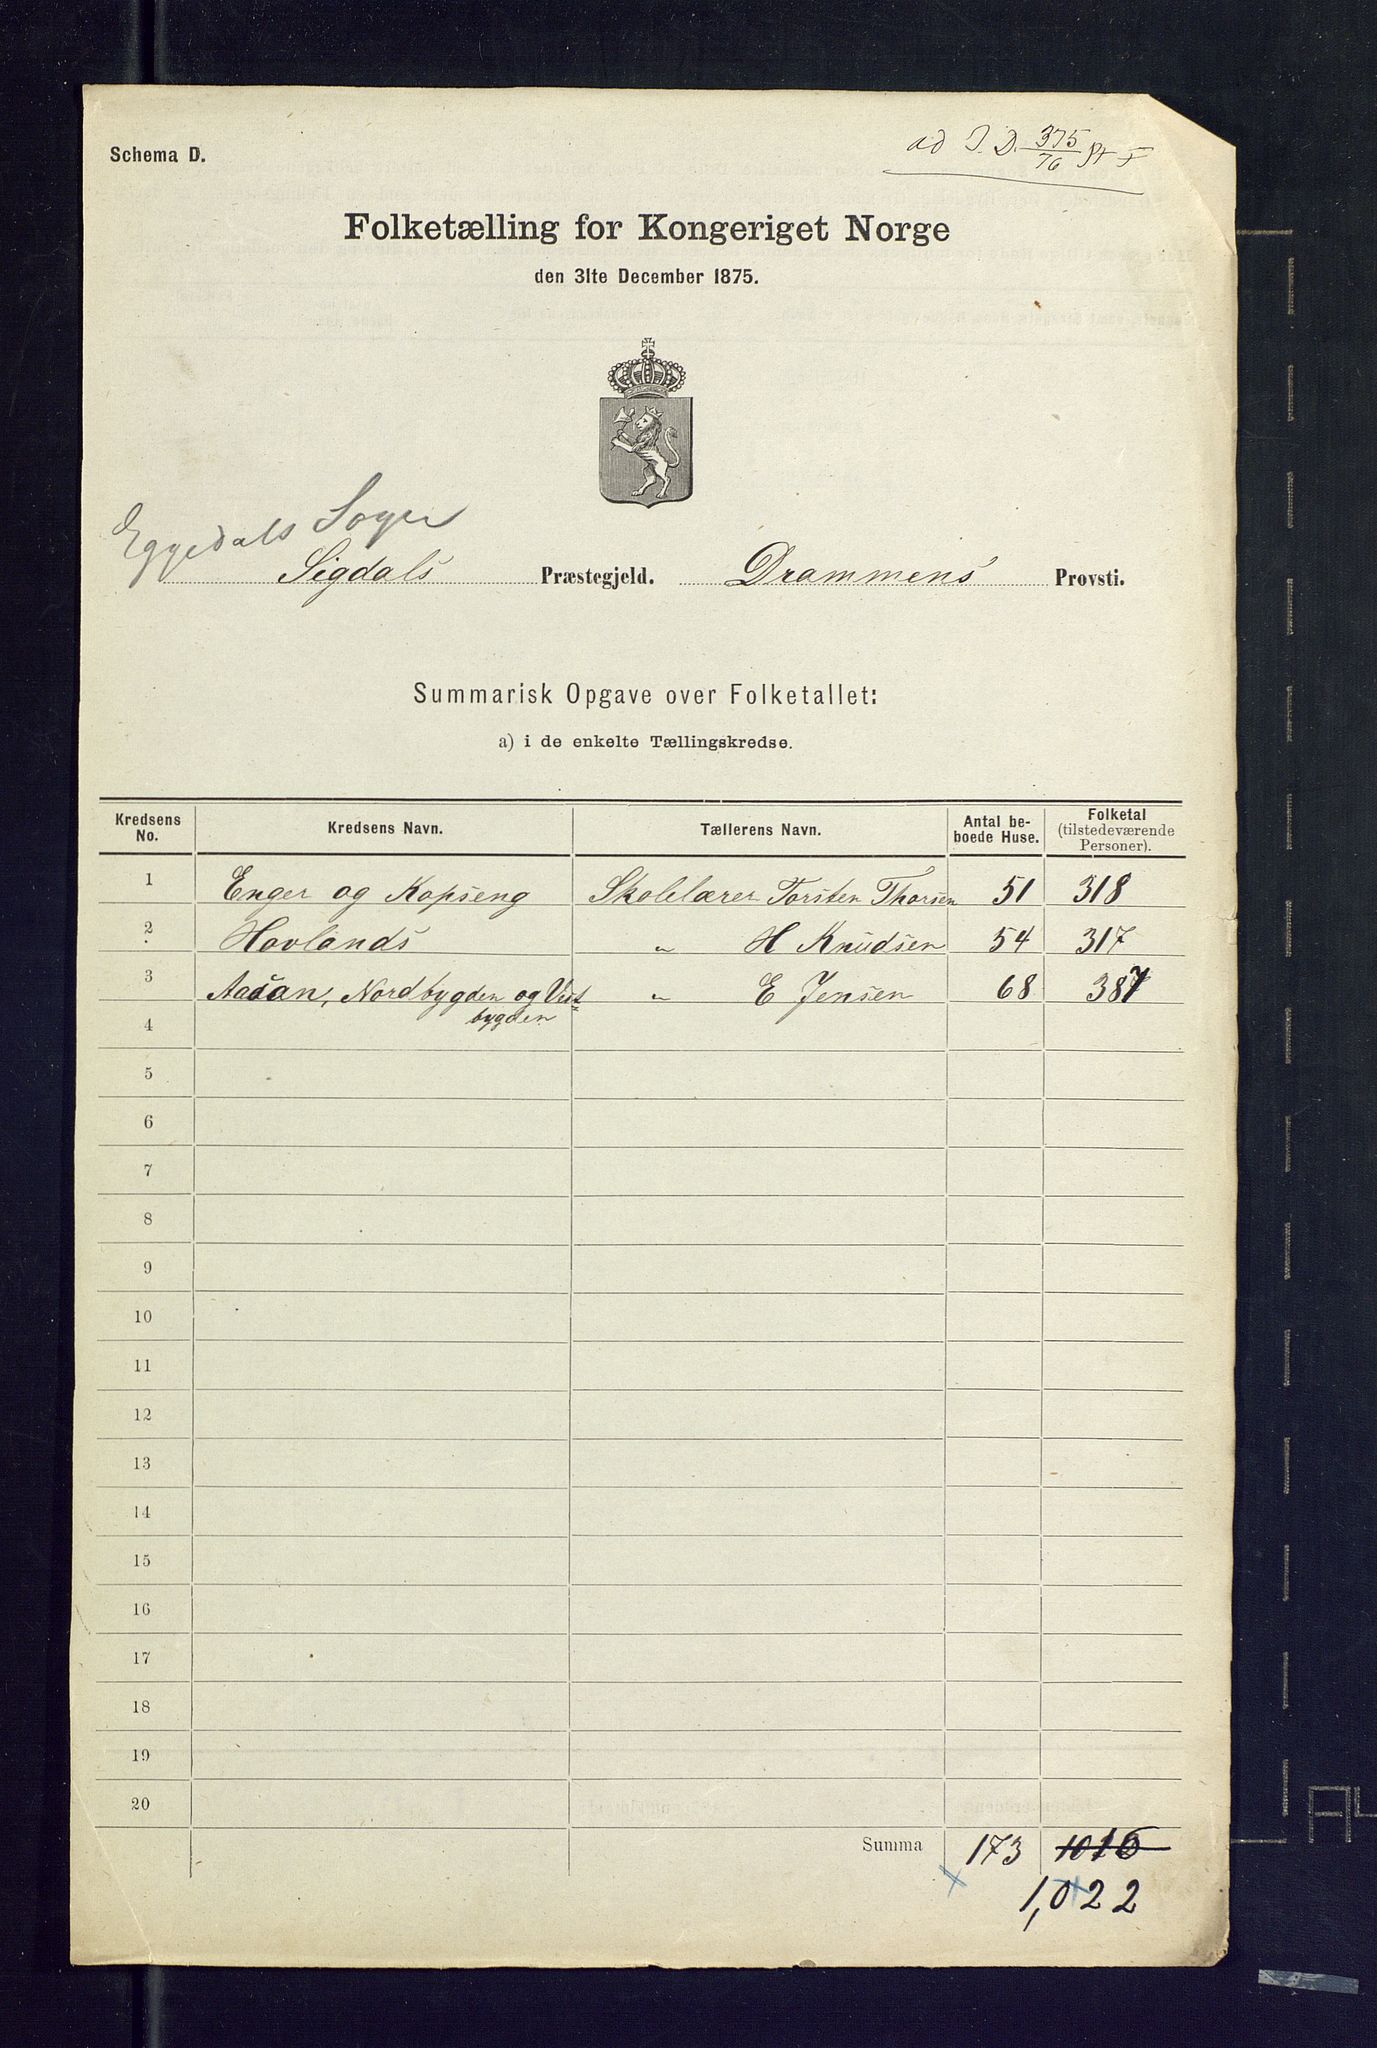 Schema D.
ad J. D. 375/76
Folketælling for Kongeriget Norge
den 31te December 1875.
Eggedals Sogn
Sigdals Præstegjeld. Drammens Provsti.
Summarisk Opgave over Folketallet:
a) i de enkelte Tællingskredse.
Kredsens No. Kredsens Navn. Tællerens Navn. Antal beboede Huse. Folketal (tilstedeværende Personer).
1 Enger og Kopseng Skolelærer Torsten Thorsen 51 318
2 Hovlands " H Knudsen 54 317
3 Aasan, Nordbygden og Vest= " E Jensen 68 387
bygden
4
5
6
7
8
9
10
11
12
13
14
15
16
17
18
19
20
Summa 173 1016
1,022